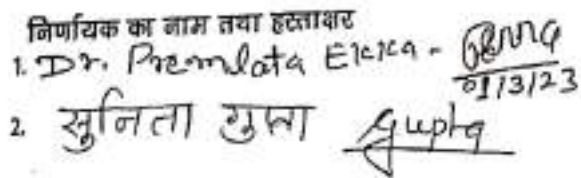 निर्णायक का नाम तथा हस्ताक्षर
1. Dr. Premlata Ekka -
01/3/23
2. सुनिता गुप्ता Gupta